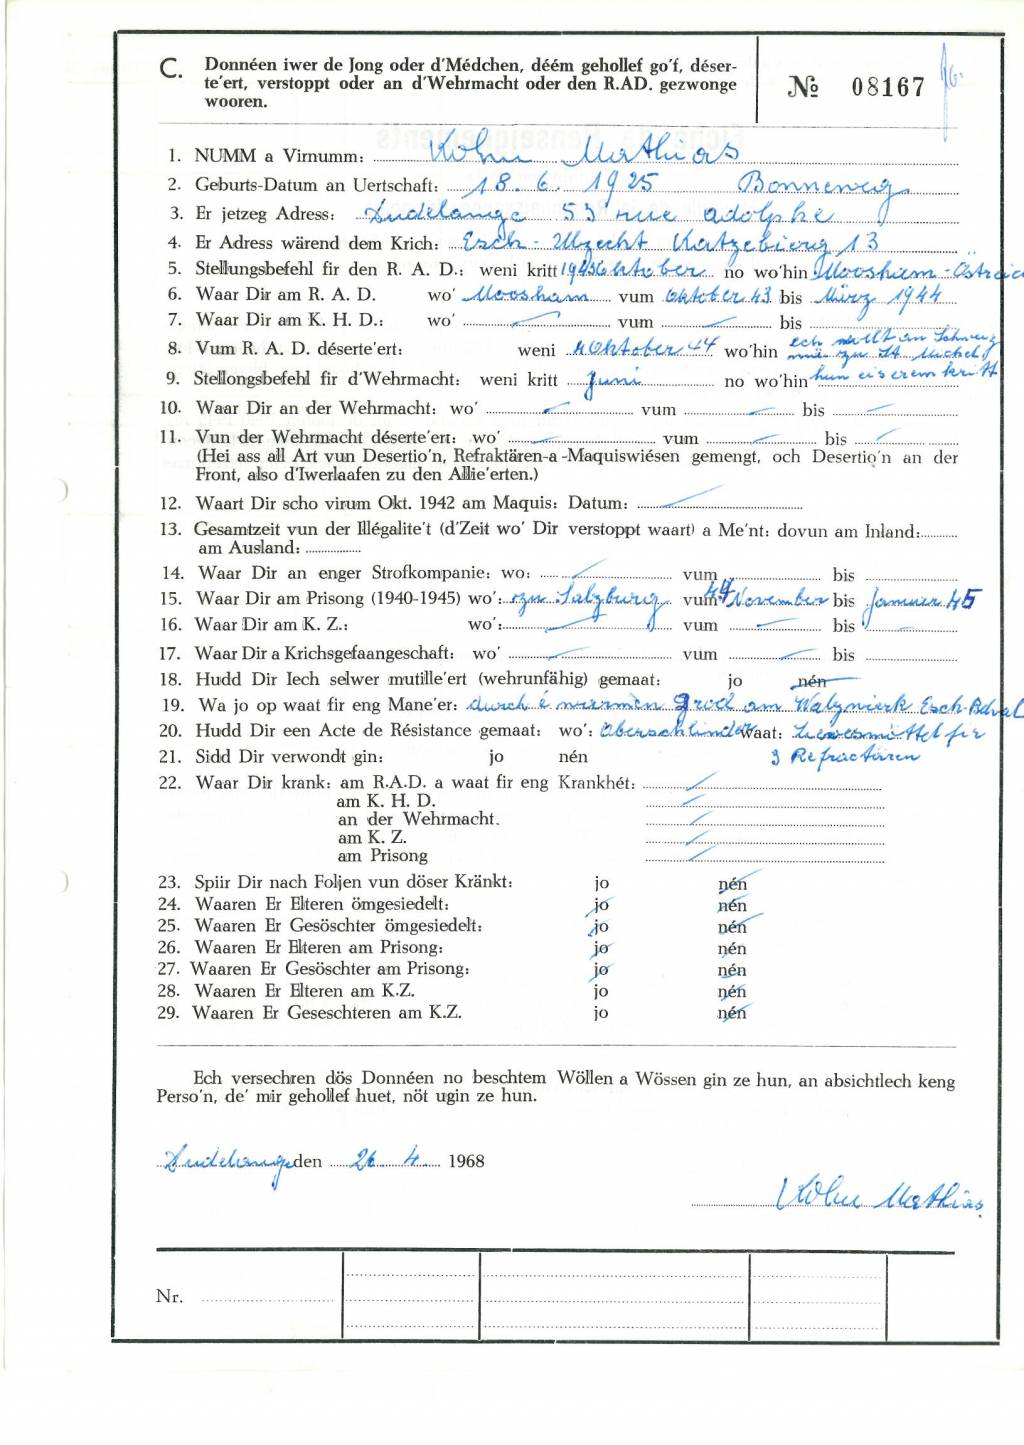 C. Donnéen iwer de Jong oder d'Médchen, déém gehollef go'f, déser-
te'ert, verstoppt oder an d'Wehrmacht oder den R.AD. gezwonge
wooren.
№ 08167
1. NUMM a Virnumm: Kohn Mathias
2. Geburts-Datum an Uertschaft: 18. 6. 1925 Bonneweg
3. Er jetzeg Adress: Dudelange 53 rue adolphe
4. Er Adress wärend dem Krich: Esch-Alzecht Katzebierg 13
5. Stellungsbefehl fir den R. A. D.: weni kritt 1943 Oktober no wo'hin Moosham-Östreich
6. Waar Dir am R. A. D. wo' Moosham vum Oktober 43 bis März 1944
7. Waar Dir am K. H. D.: wo' vum bis
8. Vum R. A. D. déserte'ert: weni Oktober 44 wo'hin ech wollt an Schweiz
zu St Michel
9. Stellongsbefehl fir d'Wehrmacht: weni kritt Juni no wo'hin hun eiserem kritt
10. Waar Dir an der Wehrmacht: wo' vum bis
11. Vun der Wehrmacht déserte'ert: wo' vum bis
(Hei ass all Art vun Desertio'n, Refraktären-a -Maquiswiésen gemengt, och Desertio'n an der
Front, also d'Iwerlaafen zu den Allie'erten.)
12. Waart Dir scho virum Okt. 1942 am Maquis: Datum:
13. Gesamtzeit vun der Illégalite't (d'Zeit wo' Dir verstoppt waart) a Me'nt: dovun am Inland:
am Ausland:
14. Waar Dir an enger Strofkompanie: wo: vum bis
15. Waar Dir am Prisong (1940-1945) wo': zu Salzburg vum 44 November bis Januar 45
16. Waar Dir am K. Z.: wo': vum bis
17. Waar Dir a Krichsgefaangeschaft: wo' vum bis
18. Hudd Dir Iech selwer mutille'ert (wehrunfähig) gemaat: jo nén
19. Wa jo op waat fir eng Mane'er: durch é warmen Grod am Walzwierk Esch-Belval
20. Hudd Dir een Acte de Résistance gemaat: wo': Waat: Liewesmëttel fir
21. Sidd Dir verwondt gin: jo nén 3 Refractären
22. Waar Dir krank: am R.A.D. a waat fir eng Krankhét:
am K. H. D.
an der Wehrmacht.
am K. Z.
am Prisong
23. Spiir Dir nach Foljen vun döser Kränkt: jo nén
24. Waaren Er Elteren ömgesiedelt: jo nén
25. Waaren Er Gesöschter ömgesiedelt: jo nén
26. Waaren Er Elteren am Prisong: jo nén
27. Waaren Er Gesöschter am Prisong: jo nén
28. Waaren Er Elteren am K.Z. jo nén
29. Waaren Er Geseschteren am K.Z. jo nén
Ech versechren dös Donnéen no beschtem Wöllen a Wössen gin ze hun, an absichtlech keng
Perso'n, de' mir gehollef huet, nöt ugin ze hun.
Dudelange den 26. 4. 1968
Kohn Mathias
Nr.